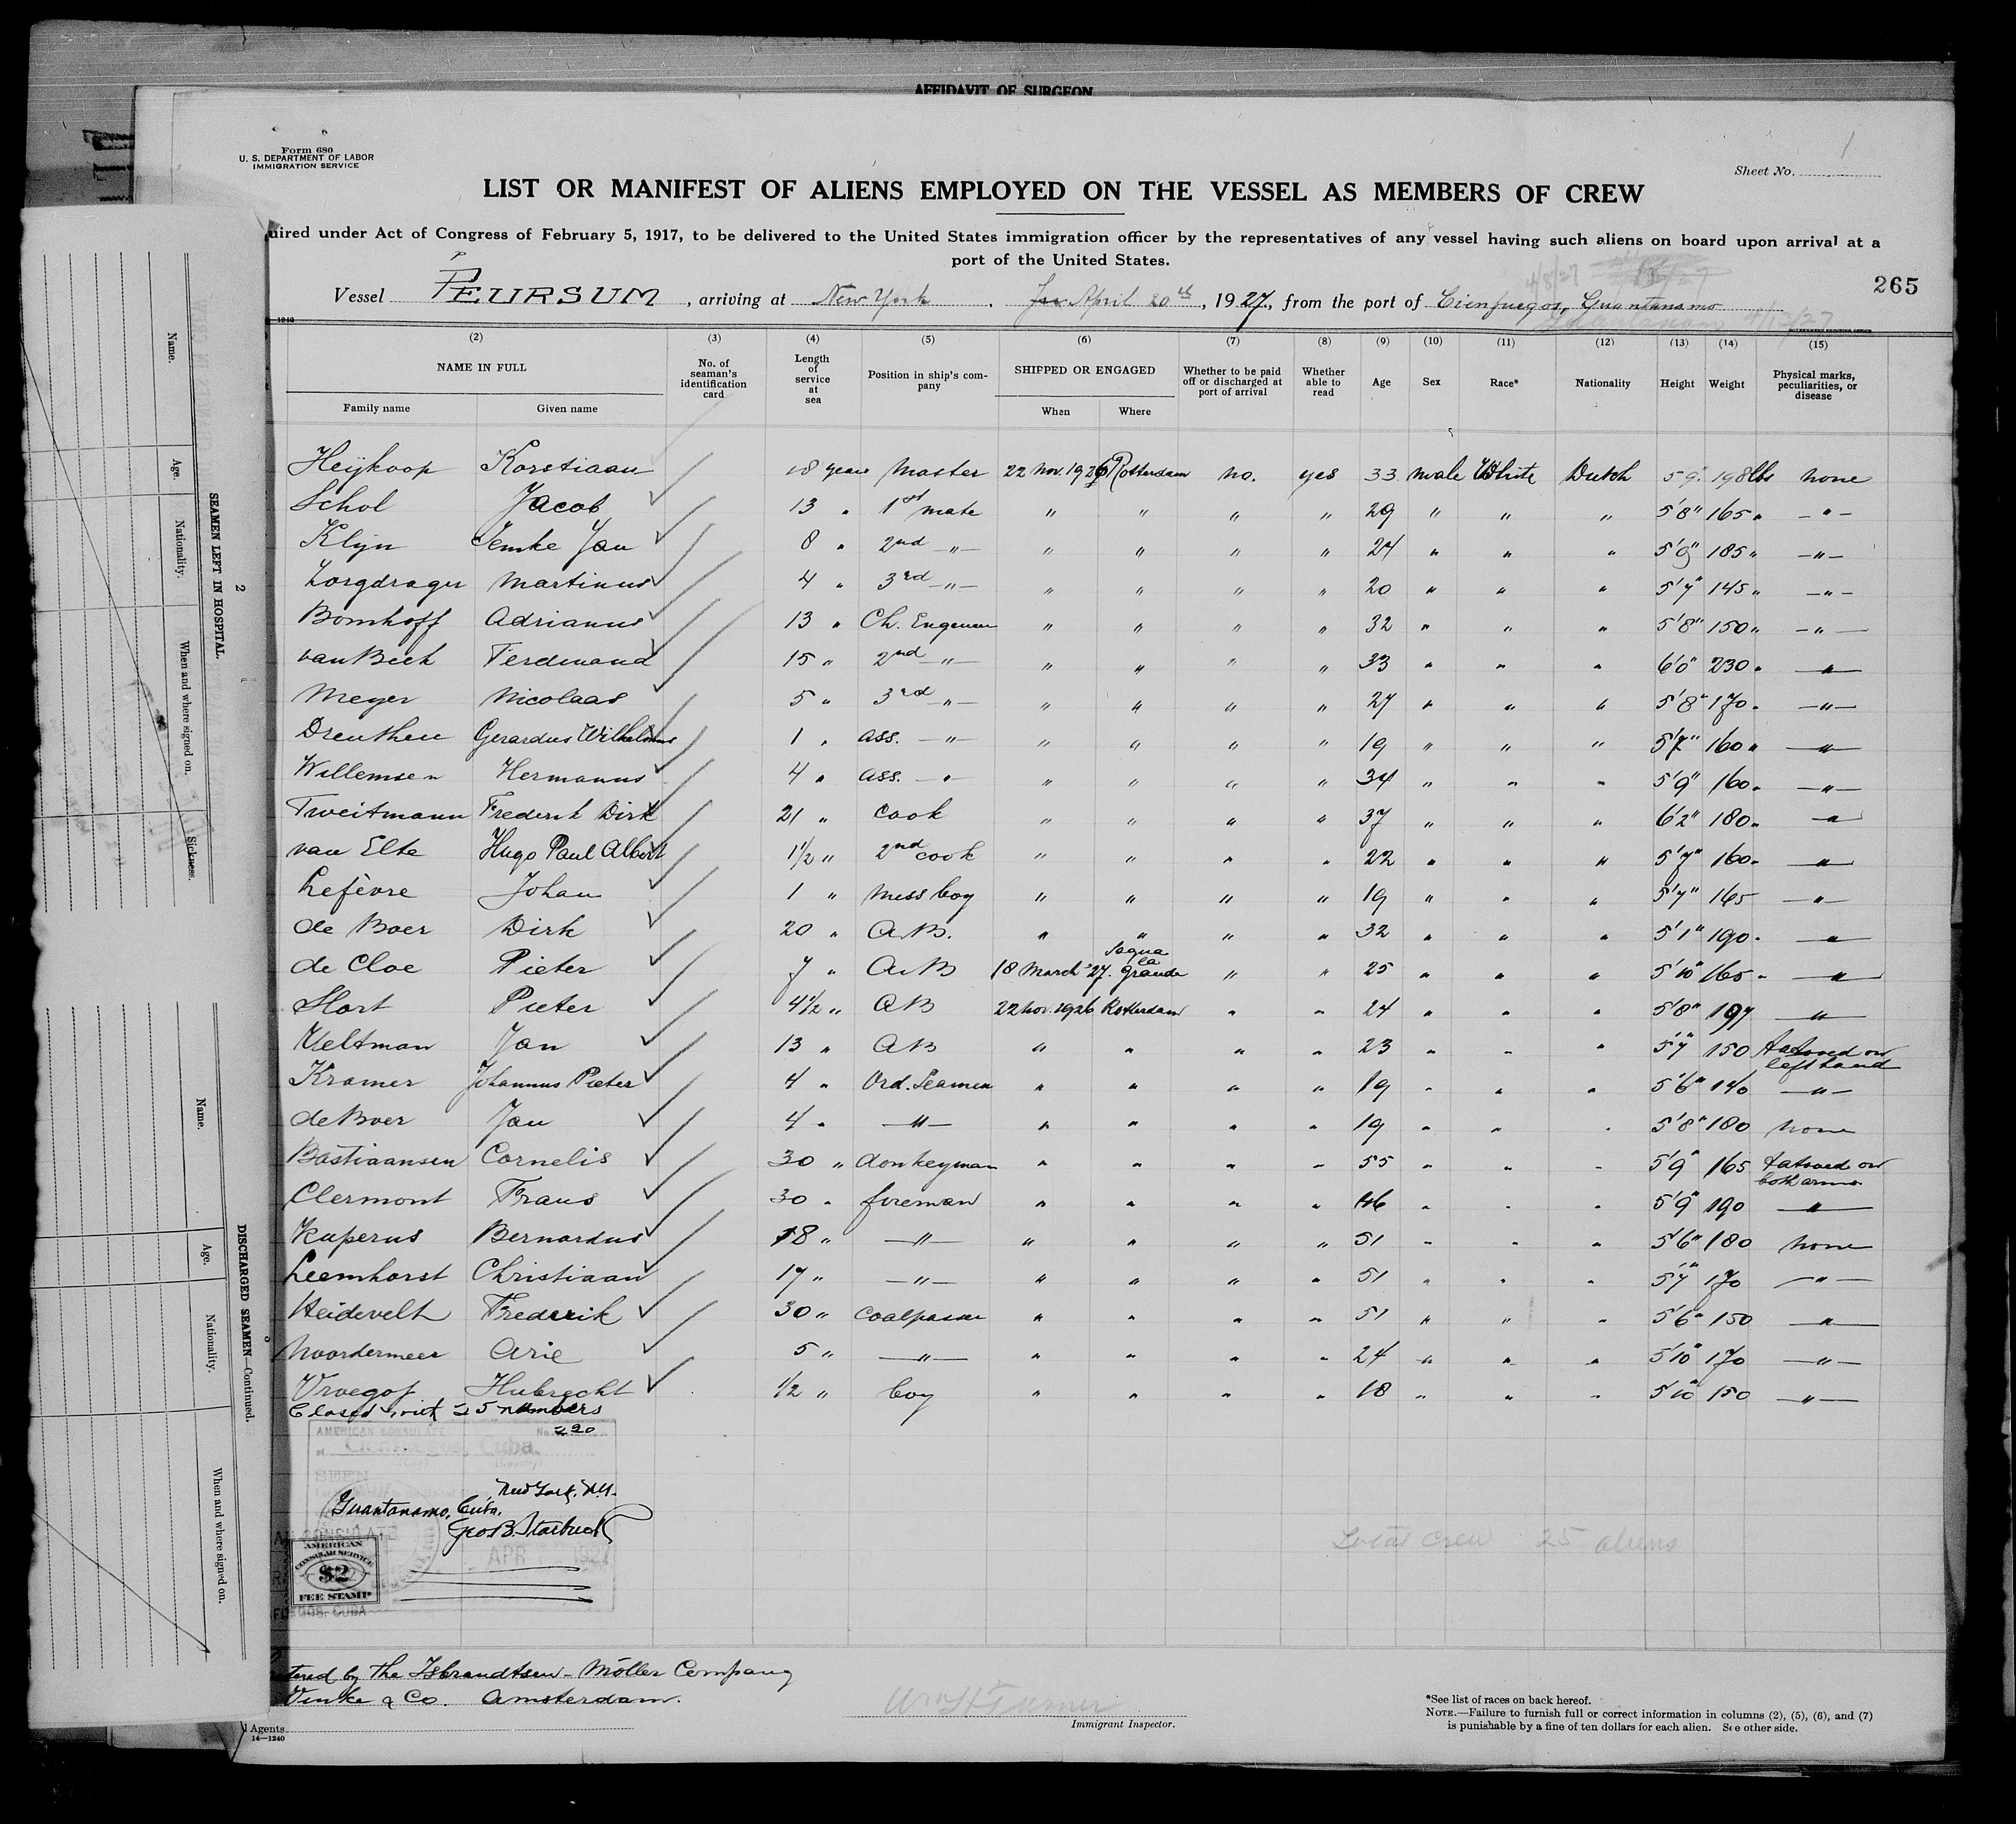 AFFIDAVIT OF SURGEON
Form 680
U. S. DEPARTMENT OF LABOR
IMMIGRATION SERVICE
Sheet No. 1
LIST OR MANIFEST OF ALIENS EMPLOYED ON THE VESSEL AS MEMBERS OF CREW
uired under Act of Congress of February 5, 1917, to be delivered to the United States immigration officer by the representatives of any vessel having such aliens on board upon arrival at a
port of the United States.
265
Vessel PEURSUM, arriving at New York. April 20th, 1927, from the port of Cienfuegos, Guantanamo
4/8/27
Guantanamo 4/13/27
(2) (3) (4) (5) (6) (7) (8) (9) (10) (11) (12) (13) (14) (15)
NAME IN FULL No. of seaman's identification card Length of service at sea Position in ship's company SHIPPED OR ENGAGED Whether to be paid off or discharged at port of arrival Whether able to read Age Sex Race* Nationality Height Weight Physical marks, peculiarities, or disease
Family name Given name When Where
Heijkoop Korstiaan 18 years Master 22 Nov. 1926 Rotterdam no. yes 33 male White Dutch 5'9" 198 lbs none
Schol Jacob 13 " 1st mate " " " " 29 " " " 5'8" 165 " — " —
Klijn Jemke Jan 8 " 2nd — " — " " " " 24 " " " 5'9" 185 " — " —
Zorgdrager Martinus 4 " 3rd — " — " " " " 20 " " " 5'7" 145 " — " —
Bomhoff Adrianus 13 " Ch. Engeneer " " " " 32 " " " 5'8" 150 " — " —
van Beek Ferdinand 15 " 2nd — " — " " " " 33 " " " 6'0" 230 " — " —
Meyer Nicolaas 5 " 3rd — " — " " " " 27 " " " 5'8" 170 " — " —
Drenthen Gerardus Wilhelmus 1 " ass. — " — " " " " 19 " " " 5'7" 160 " — " —
Willemsen Hermanus 4 " ass. — " — " " " " 34 " " " 5'9" 160 " — " —
Tweitmann Frederik Dirk 21 " cook " " " " 37 " " " 6'2" 180 " — " —
van Elte Hugo Paul Albert 1½ " 2nd cook " " " " 22 " " " 5'7" 160 " — " —
Lefèvre Johan 1 " mess boy " " " " 19 " " " 5'7" 165 — " —
de Boer Dirk 20 " A.B. " " " " 32 " " " 5'1" 190 " — " —
de Cloe Pieter 7 " A.B 18 March '27. Sagua la grande " " 25 " " " 5'10" 165 " — " —
Stort Pieter 4½ " AB 22 nov. 1926 Rotterdam " " 24 " " " 5'8" 197 — " —
Veltman Jan 13 " AB " " " " 23 " " " 5'7" 150 tattooed on left hand
Kramer Johannus Pieter 4 " Ord. Seamen " " " " 19 " " " 5'6" 140 — " —
de Boer Jan 4 " — " — " " " " 19 " " " 5'8" 180 none
Bastiaansen Cornelis 30 " donkeyman " " " " 55 " " " 5'9" 165 tatooed on both arms
Clermont Frans 30 " fireman " " " " 46 " " " 5'9" 190 — " —
Kuperus Bernardus 18 " — " — " " " " 51 " " " 5'6" 180 none
Leemhorst Christiaan 17 " — " — " " " " 51 " " " 5'7" 170 — " —
Heidevelt Frederik 30 " coalpasser " " " " 51 " " " 5'6" 150 — " —
Noordermeer Arie 5 " — " — " " " " 24 " " " 5'10" 170 — " —
Vroegop Hubrecht ½ " boy " " " " 18 " " " 5'10" 150 — " —
Closed with 25 numbers
AMERICAN CONSULATE No. 220
Cuba
(City) (Country)
SEEN
New York, N.Y.
Guantanamo, Cuba.
Geo B. Starbuck
APR 1927
AMERICAN
CONSULAR SERVICE
$2
FEE STAMP
Total crew 25 aliens
tered by the Isbrandtsen-Möller Company
Vinke & Co. Amsterdam.
l Agents
14—1240
Wm H Turner
Immigrant Inspector.
*See list of races on back hereof.
NOTE.—Failure to furnish full or correct information in columns (2), (5), (6), and (7)
is punishable by a fine of ten dollars for each alien. See other side.
2
SEAMEN LEFT IN HOSPITAL.
Name. Age. Nationality. When and where signed on. Sickness.
DISCHARGED SEAMEN—Continued.
Name. Age. Nationality. When and where signed on.